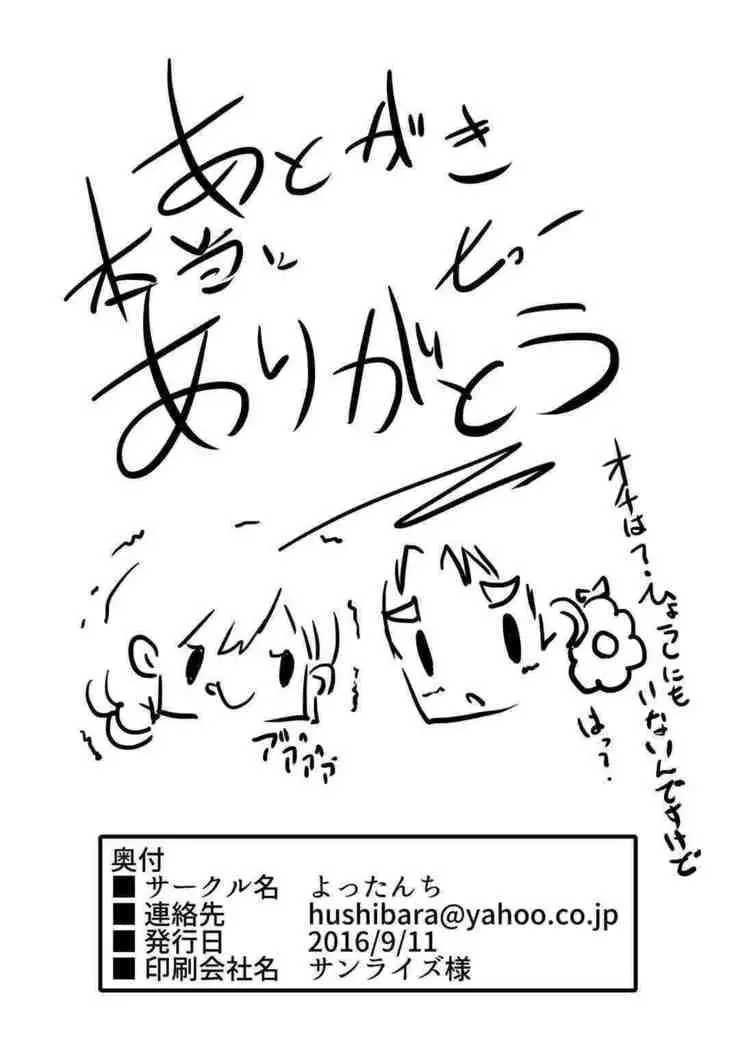 あとがき
本当に
ありがとう
オチは?ひょうこにも
いないんですけど
はっ?
アアアアア
奥付
■ サークル名 よったんち
■ 連絡先 hushibara@yahoo.co.jp
■ 発行日 2016/9/11
■ 印刷会社名 サンライズ様